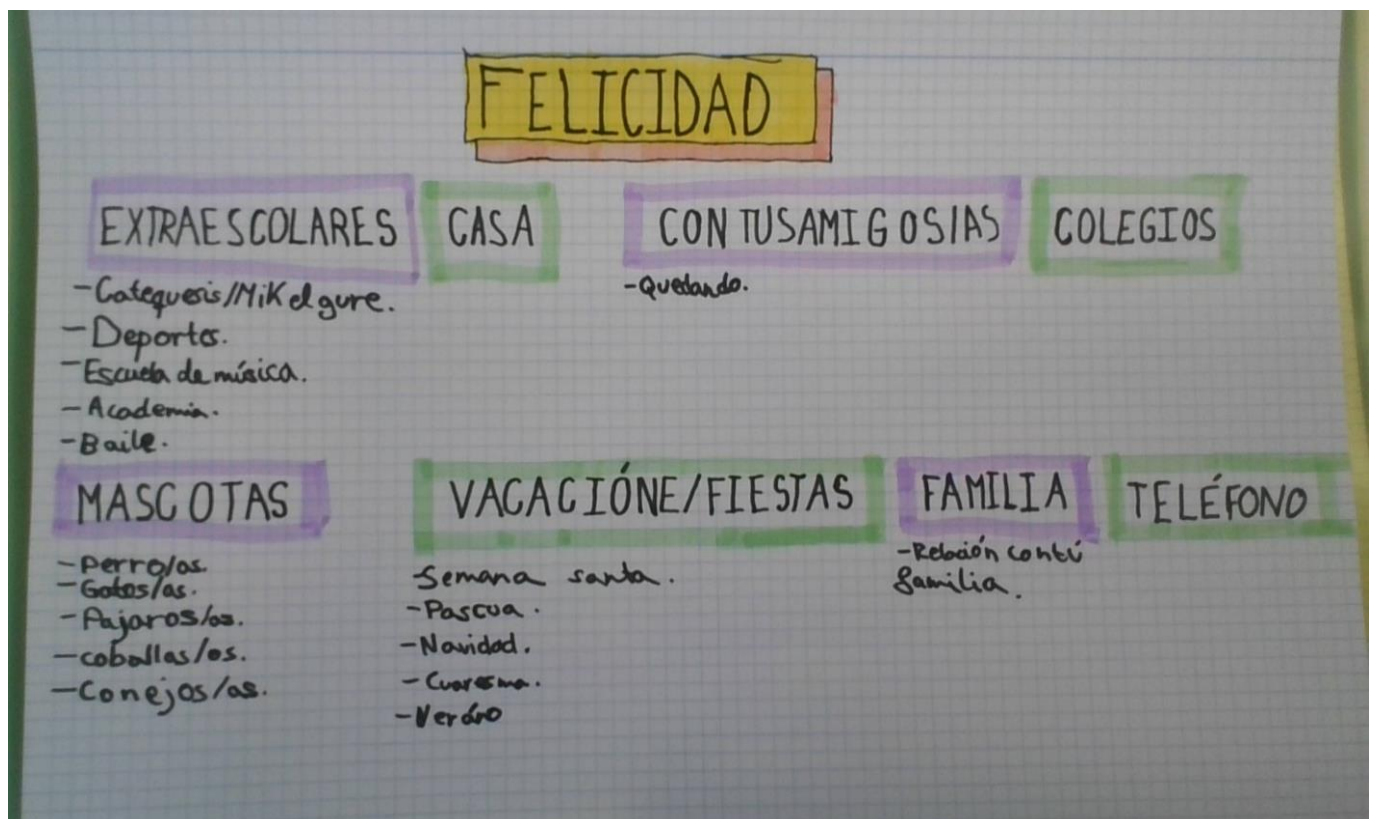 FELICIDAD
EXTRAESCOLARES
-Catequesis/Mikelgure.
-Deportes.
-Escuela de música.
-Academia.
-Baile.
CASA
CON TUSAMIGOS/AS
-Quedando.
COLEGIOS
MASCOTAS
-Perro/as.
-Gatos/as.
-Pajaros/as.
-coballas/os.
-Conejos/as.
VACACIÓNE/FIESTAS
-Semana santa.
-Pascua.
-Navidad.
-Cuaresma.
-Veráno
FAMILIA
-Relación contú
familia.
TELÉFONO